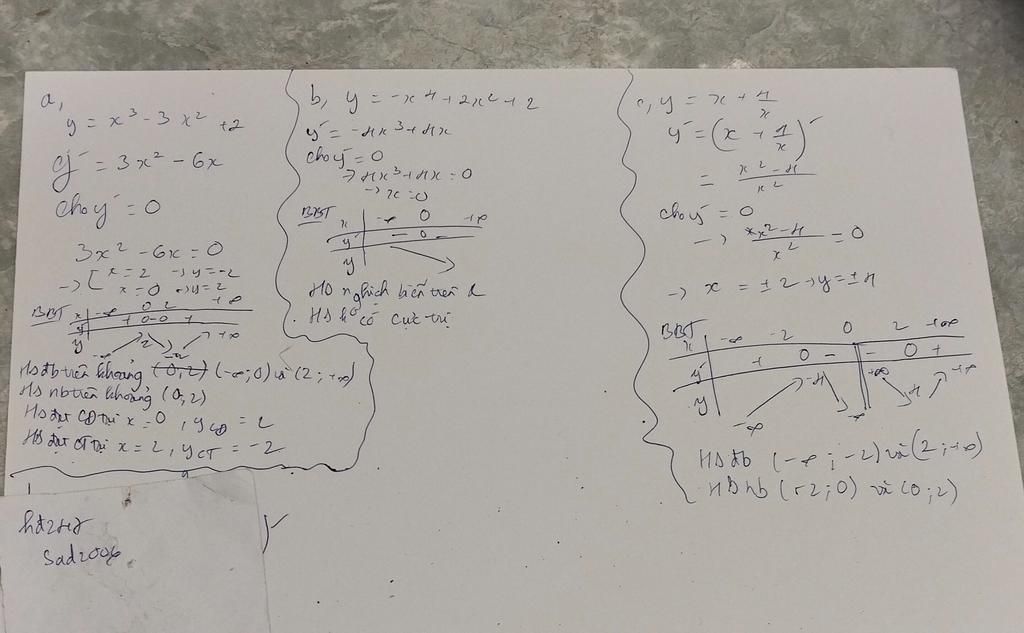 a,
y = x³ - 3x² + 2
y' = 3x² - 6x
cho y' = 0
3x² - 6x = 0
→ [ x = 2 → y = -2
x = 0 → y = 2
BBT x -∞ 0 2 +∞
y' + 0 - 0 +
y -∞ 2 -2 +∞
HS đb trên khoảng (0;2) (-∞;0) và (2;+∞)
HS nb trên khoảng (0;2)
HS đạt CĐ tại x = 0, yCĐ = 2
HS đạt CT tại x = 2, yCT = -2
b, y = -x⁴ + 2x² + 2
y' = -4x³ + 4x
cho y' = 0
→ 4x³ + 4x = 0
→ x = 0
BBT x -∞ 0 +∞
y' - 0 -
y
HS nghịch biến trên R
HS k có cực trị
c, y = x + 4/x
y' = (x + 4/x)'
= x² - 4 / x²
cho y' = 0
→ x² - 4 / x² = 0
→ x = ±2 → y = ±4
BBT
x -∞ -2 0 2 +∞
y' + 0 - - 0 +
y -∞ -4 -∞ +∞ 4 +∞
HS đb (-∞; -2) và (2; +∞)
HS nb (-2; 0) và (0; 2)
sad2006